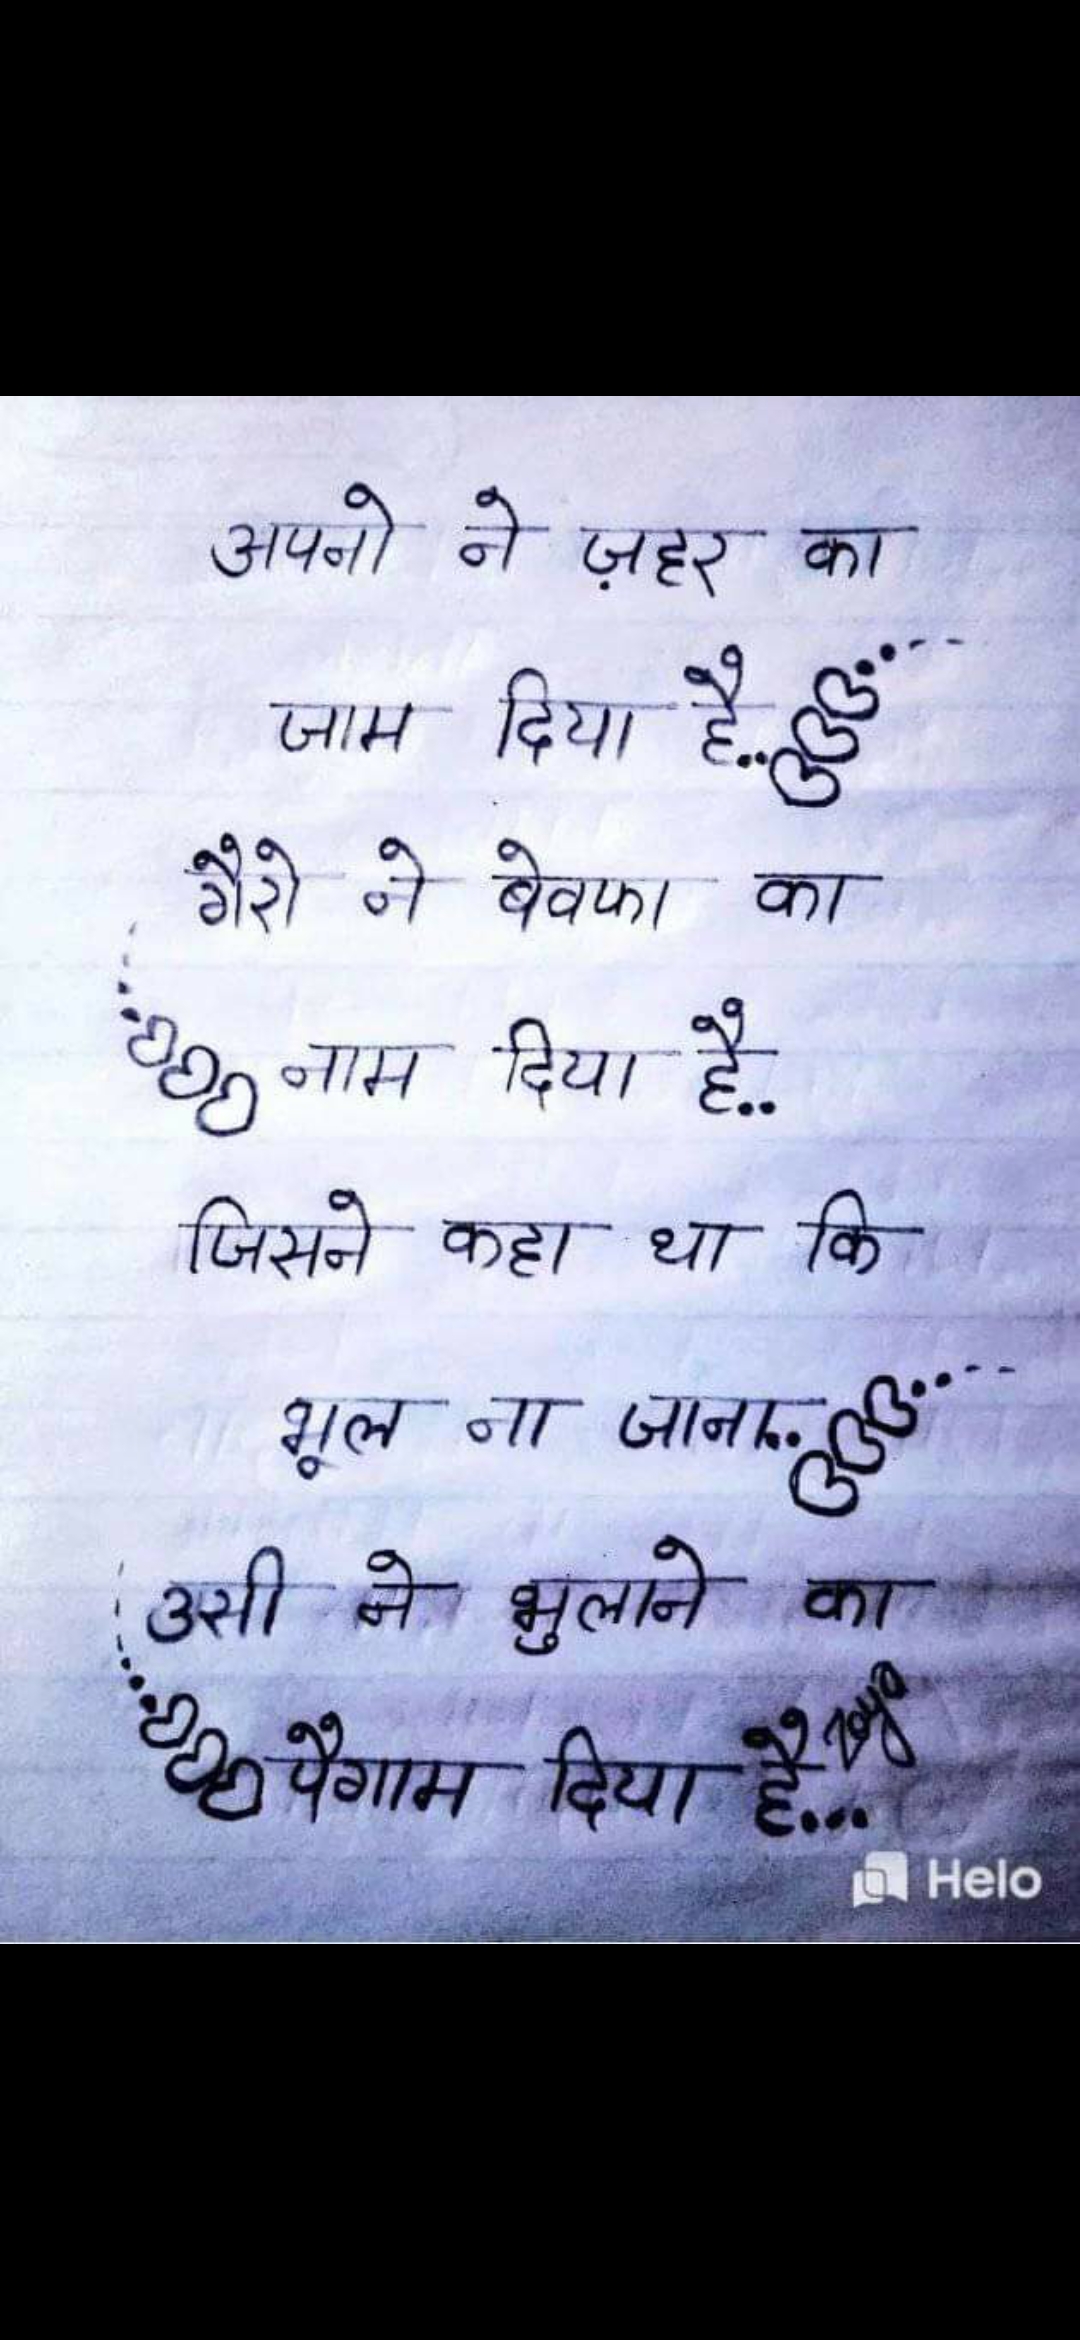 अपनो ने ज़हर का
जाम दिया है..
गैरो ने बेवफा का
नाम दिया है..
जिसने कहा था कि
भूल ना जाना..
उसी ने भुलाने का
पैगाम दिया है...
Helo